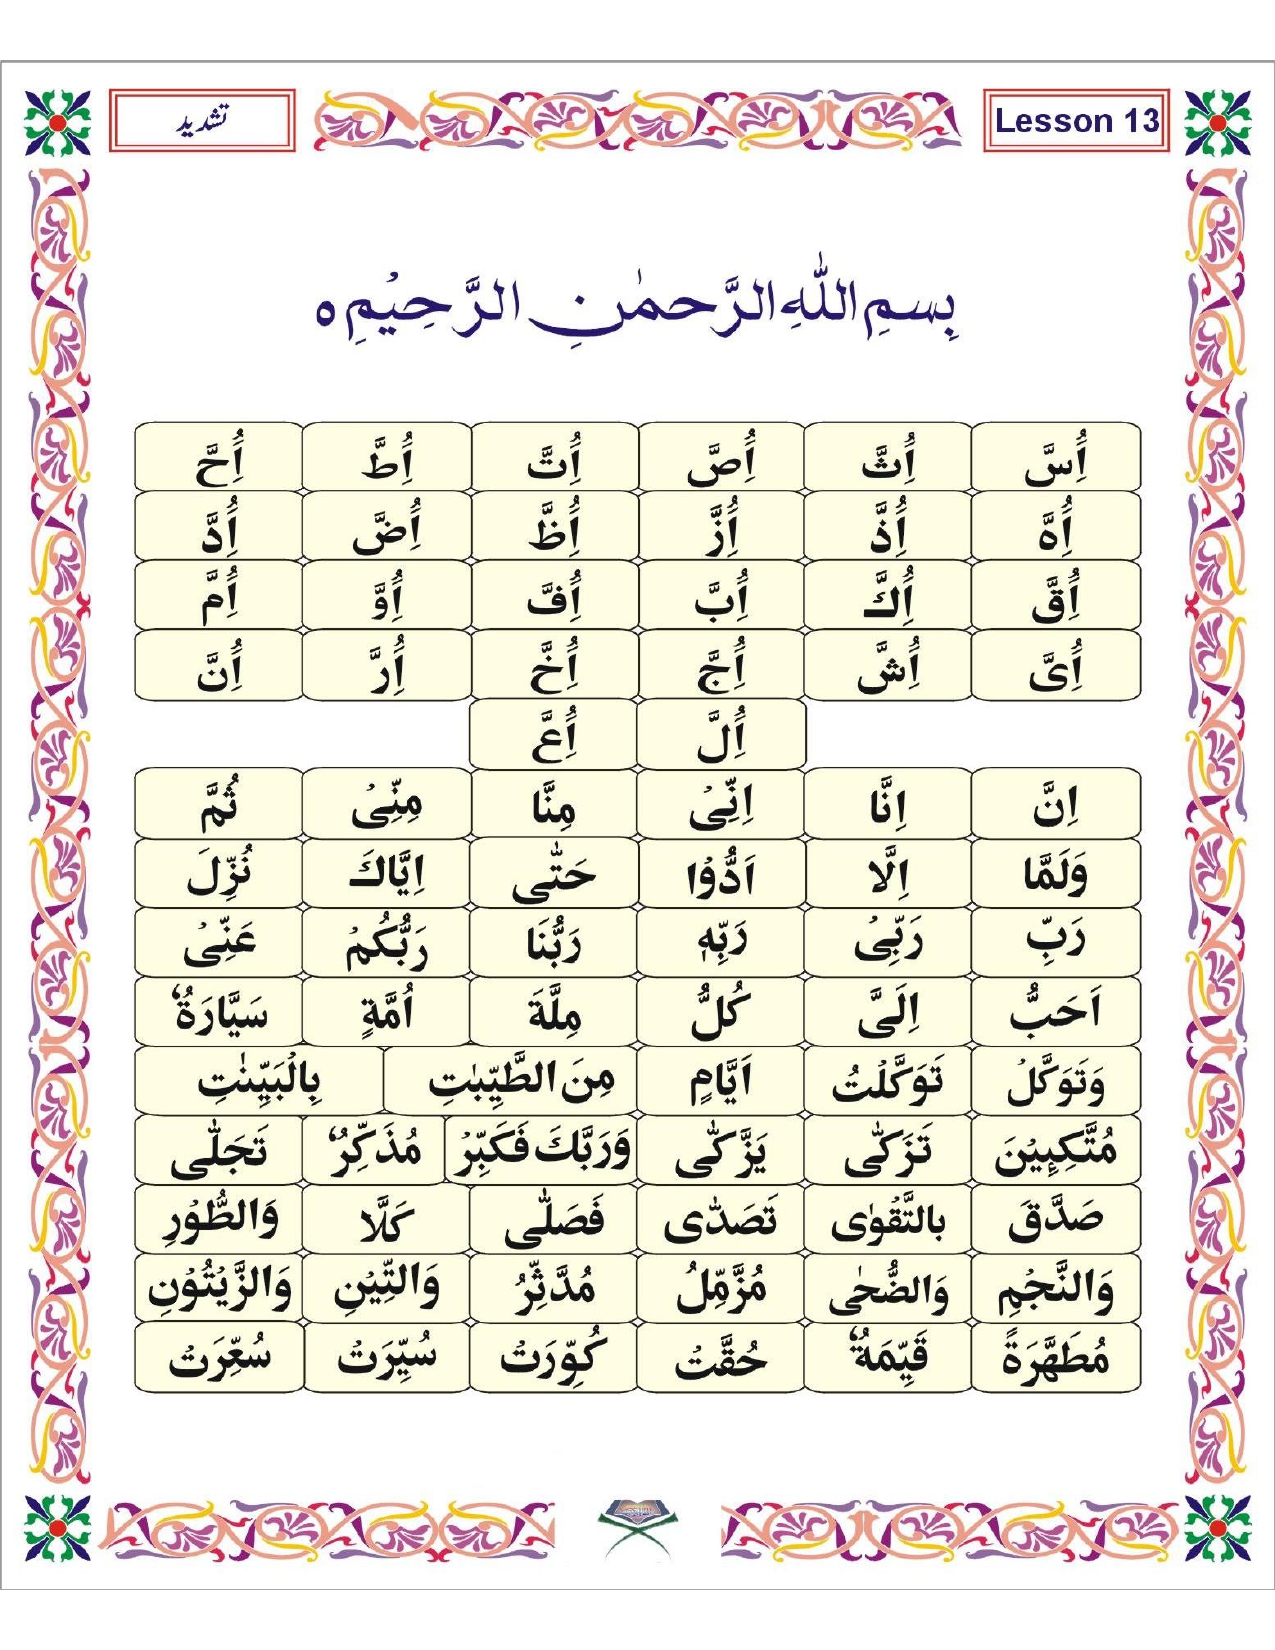 Lesson 13 تشدید
بِسمِ اللّٰهِ الرَّحمٰنِ الرَّحِيۡمِ ه
اَُِسَّ اَُِثَّ اَُِصَّ اَُِتَّ اَُِطَّ اَُِحَّ
اَُِهَّ اَُِذَّ اَُِزَّ اَُِظَّ اَُِضَّ اَُِدَّ
اَُِقَّ اَُِكَّ اَُِبَّ اَُِفَّ اَُِوَّ اَُِمَّ
اَُِىَّ اَُِشَّ اَُِجَّ اَُِخَّ اَُِرَّ اَُِنَّ
اَُِلَّ اَُِعَّ
اِنَّ اِنَّا اِنِّىۡ مِنَّا مِنِّىۡ ثُمَّ
وَلَمَّا اِلَّا اَدُّوۡا حَتّٰى اِيَّاكَ نُزِّلَ
رَبِّ رَبِّىۡ رَبِّهٖ رَبُّنَا رَبُّكُمۡ عَنِّىۡ
اَحَبُّ اِلَىَّ كُلُّ مِلَّةَ اُمَّةٍ سَيَّارَةٌ
وَتَوَكَّلۡ تَوَكَّلۡتُ اَيَّامٍ مِنَ الطَّيِّبٰتِ بِالۡبَيِّنٰتِ
مُتَّكِـِٕيۡنَ تَزَكّٰى يَزَّكّٰى وَرَبَّكَ فَكَبِّرۡ مُذَكِّرٌ تَجَلّٰى
صَدَّقَ بالتَّقۡوٰى تَصَدّٰى فَصَلّٰى كَلَّا وَالطُّوۡرِ
وَالنَّجۡمِ وَالضُّحٰى مُزَّمِّلُ مُدَّثِّرُ وَالتِّيۡنِ وَالزَّيۡتُوۡنِ
مُطَهَّرَةً قَيِّمَةٌ حُقَّتۡ كُوِّرَتۡ سُيِّرَتۡ سُعِّرَتۡ